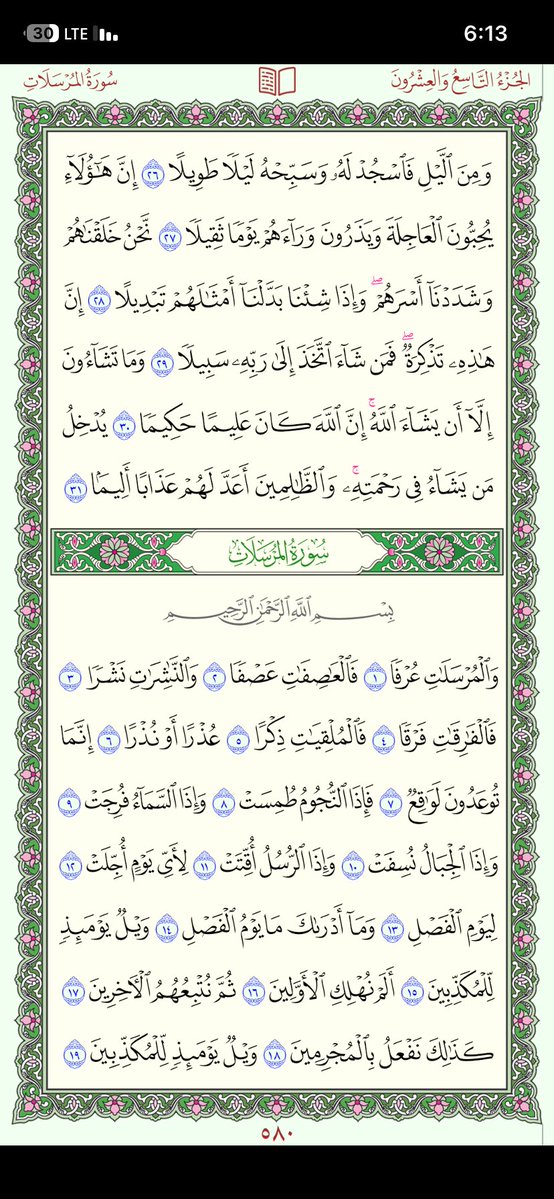 30 LTE 6:13
الجُزْءُ التَّاسِعُ وَالعِشْرُونَ سُورَةُ المُرْسَلَاتِ
وَمِنَ ٱلَّيۡلِ فَٱسۡجُدۡ لَهُۥ وَسَبِّحۡهُ لَيۡلٗا طَوِيلًا ٢٦ إِنَّ هَٰٓؤُلَآءِ
يُحِبُّونَ ٱلۡعَاجِلَةَ وَيَذَرُونَ وَرَآءَهُمۡ يَوۡمٗا ثَقِيلٗا ٢٧ نَّحۡنُ خَلَقۡنَٰهُمۡ
وَشَدَدۡنَآ أَسۡرَهُمۡۖ وَإِذَا شِئۡنَا بَدَّلۡنَآ أَمۡثَٰلَهُمۡ تَبۡدِيلًا ٢٨ إِنَّ
هَٰذِهِۦ تَذۡكِرَةٞۖ فَمَن شَآءَ ٱتَّخَذَ إِلَىٰ رَبِّهِۦ سَبِيلٗا ٢٩ وَمَا تَشَآءُونَ
إِلَّآ أَن يَشَآءَ ٱللَّهُۚ إِنَّ ٱللَّهَ كَانَ عَلِيمًا حَكِيمٗا ٣٠ يُدۡخِلُ
مَن يَشَآءُ فِي رَحۡمَتِهِۦۚ وَٱلظَّٰلِمِينَ أَعَدَّ لَهُمۡ عَذَابًا أَلِيمَۢا ٣١
سُورَةُ المُرْسَلَاتِ
بِسۡمِ ٱللَّهِ ٱلرَّحۡمَٰنِ ٱلرَّحِيمِ
وَٱلۡمُرۡسَلَٰتِ عُرۡفٗا ١ فَٱلۡعَٰصِفَٰتِ عَصۡفٗا ٢ وَٱلنَّٰشِرَٰتِ نَشۡرٗا ٣
فَٱلۡفَٰرِقَٰتِ فَرۡقٗا ٤ فَٱلۡمُلۡقِيَٰتِ ذِكۡرًا ٥ عُذۡرًا أَوۡ نُذۡرًا ٦ إِنَّمَا
تُوعَدُونَ لَوَٰقِعٞ ٧ فَإِذَا ٱلنُّجُومُ طُمِسَتۡ ٨ وَإِذَا ٱلسَّمَآءُ فُرِجَتۡ ٩
وَإِذَا ٱلۡجِبَالُ نُسِفَتۡ ١٠ وَإِذَا ٱلرُّسُلُ أُقِّتَتۡ ١١ لِأَيِّ يَوۡمٍ أُجِّلَتۡ ١٢
لِيَوۡمِ ٱلۡفَصۡلِ ١٣ وَمَآ أَدۡرَىٰكَ مَا يَوۡمُ ٱلۡفَصۡلِ ١٤ وَيۡلٞ يَوۡمَئِذٖ
لِّلۡمُكَذِّبِينَ ١٥ أَلَمۡ نُهۡلِكِ ٱلۡأَوَّلِينَ ١٦ ثُمَّ نُتۡبِعُهُمُ ٱلۡأٓخِرِينَ ١٧
كَذَٰلِكَ نَفۡعَلُ بِٱلۡمُجۡرِمِينَ ١٨ وَيۡلٞ يَوۡمَئِذٖ لِّلۡمُكَذِّبِينَ ١٩
٥٨٠